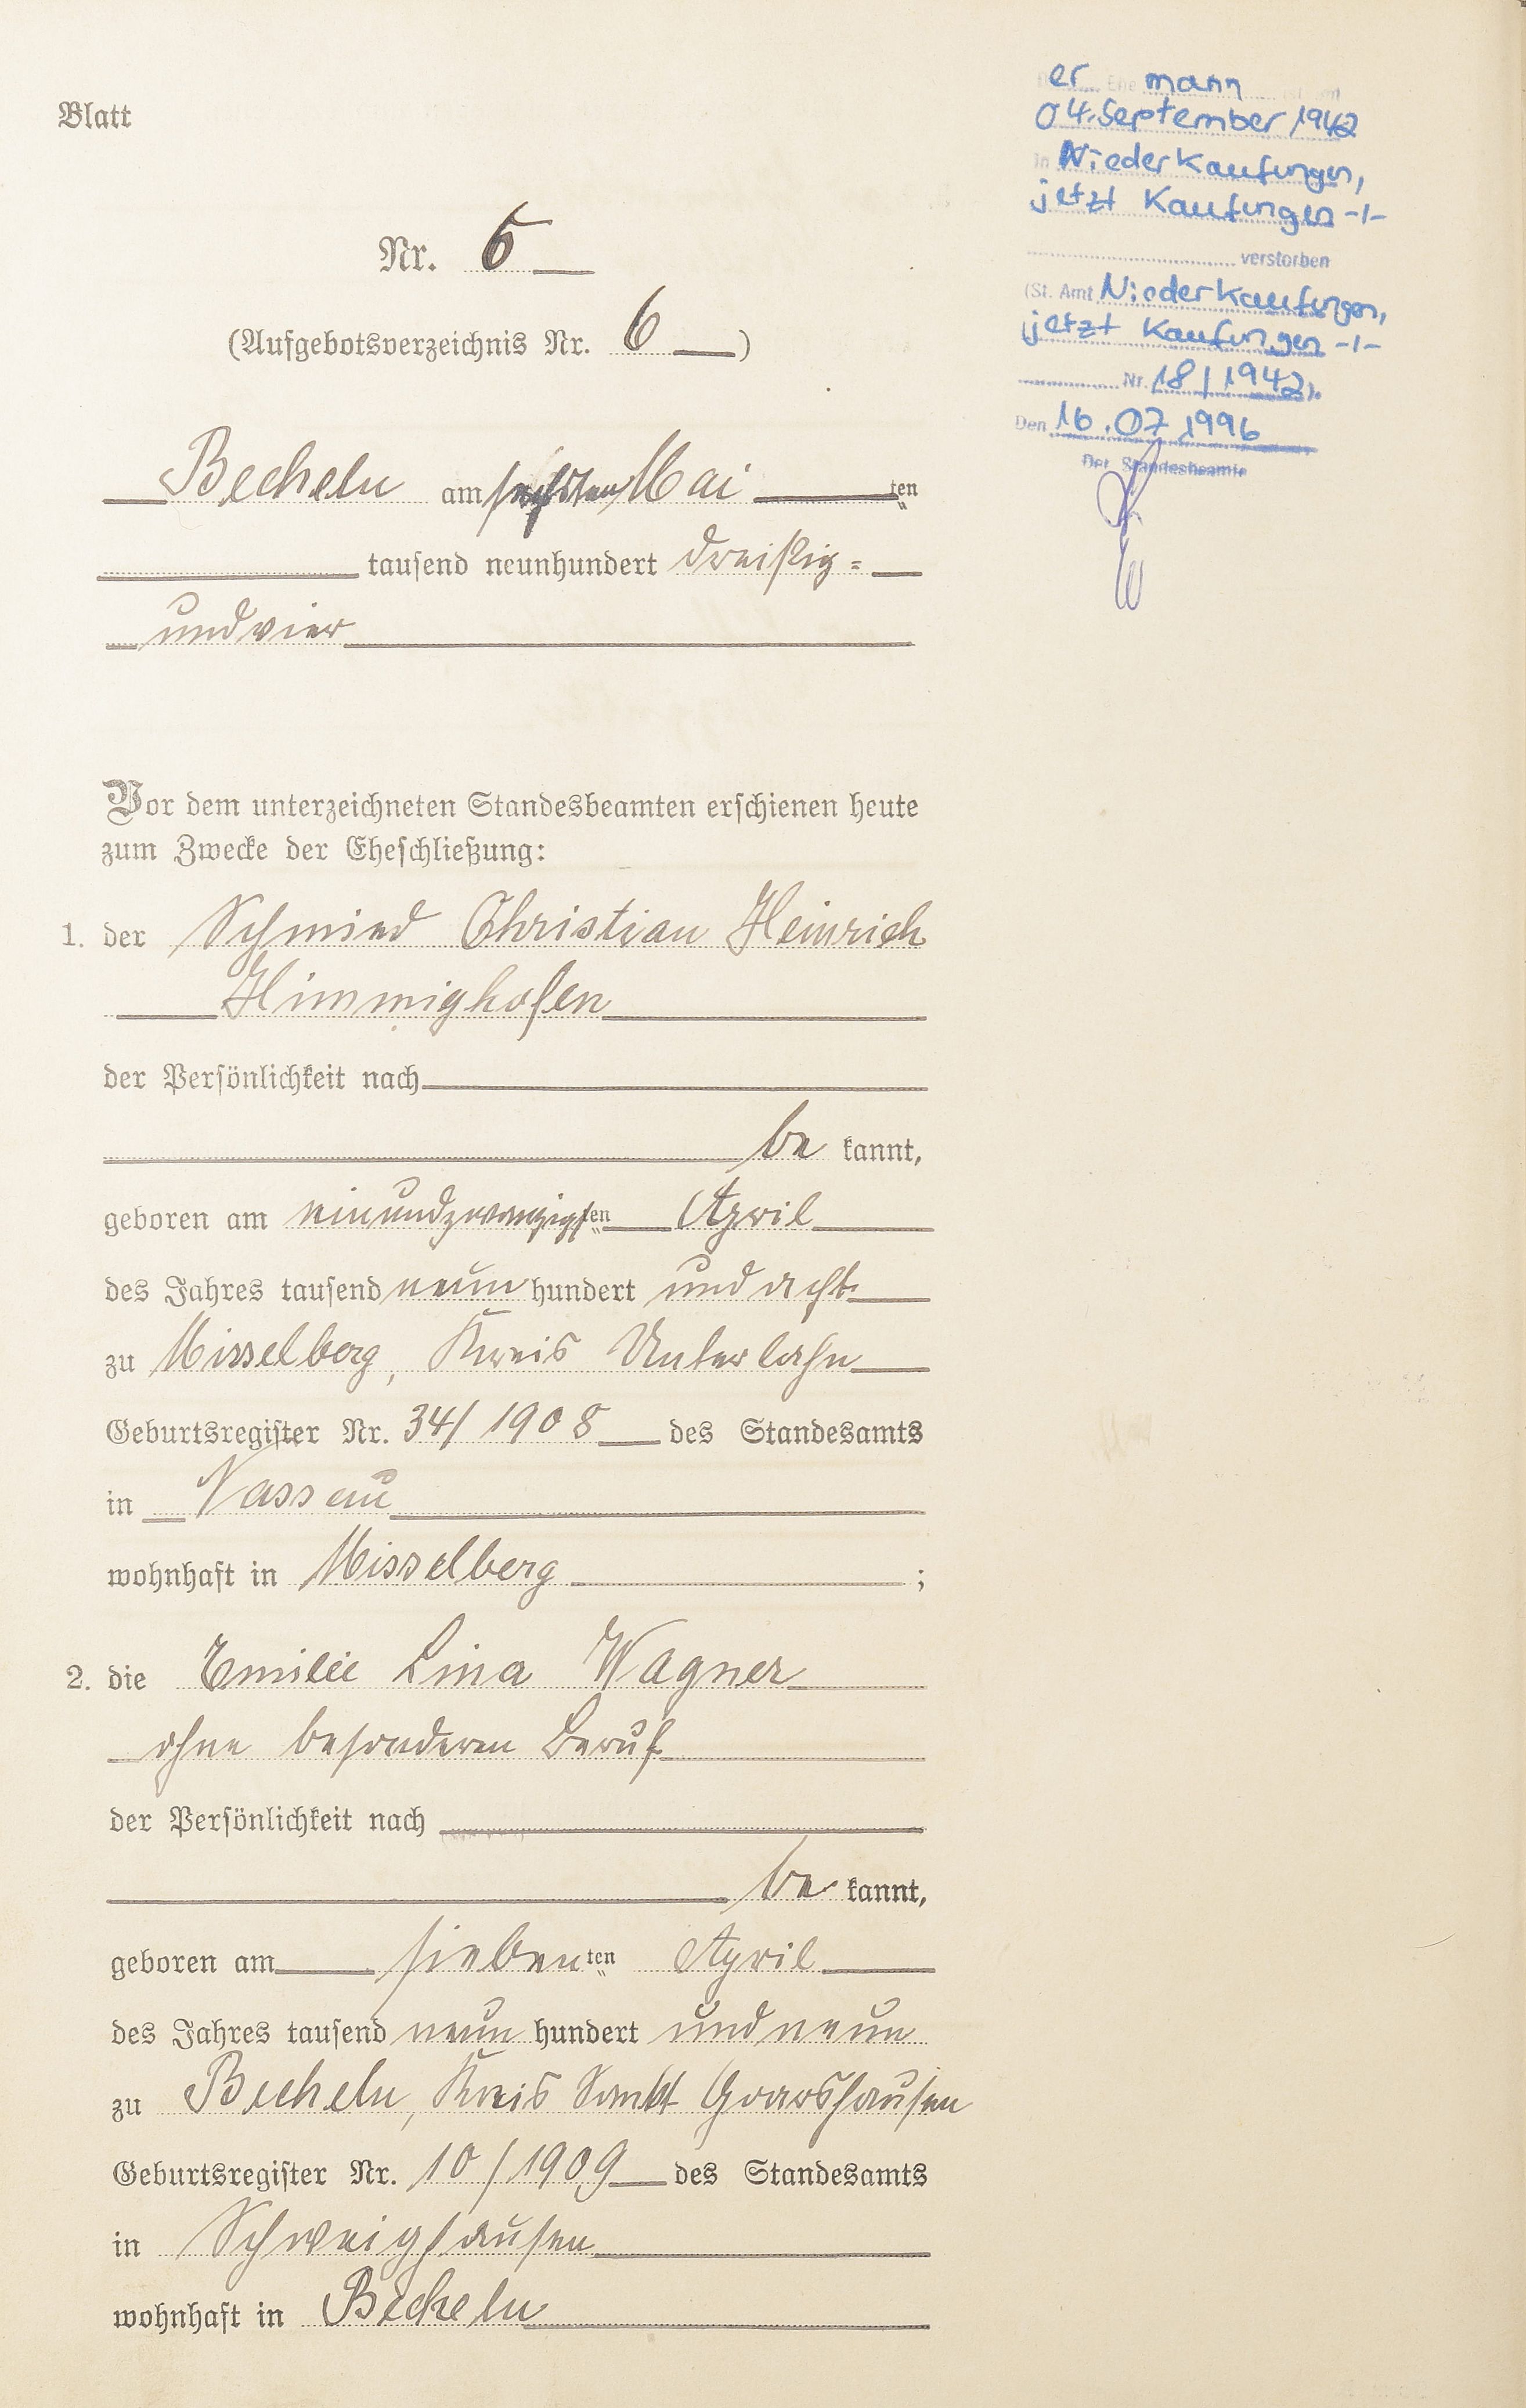 Blatt
Nr. 6
(Aufgebotsverzeichnis Nr. 6)
Becheln am sechsten Mai ten
tausend neunhundert dreißig=
undvier
Vor dem unterzeichneten Standesbeamten erschienen heute
zum Zwecke der Eheschließung:
1. der Schmied Christian Heinrich
Himmighofen
der Persönlichkeit nach
be kannt,
geboren am einundzwanzigsten April
des Jahres tausend neun hundert und acht
zu Misselberg, Kreis Unterlahn
Geburtsregister Nr. 34/1908 des Standesamts
in Nassau
wohnhaft in Misselberg ;
2. die Emilie Lina Wagner
ohne besonderen Beruf
der Persönlichkeit nach
be kannt,
geboren am siebenten April
des Jahres tausend neun hundert und neun
zu Becheln, Kreis Sankt Goarshausen
Geburtsregister Nr. 10/1909 des Standesamts
in Schweighausen
wohnhaft in Becheln
er Ehe mann ist am
04. September 1942
in Niederkaufungen,
jetzt Kaufungen -/-
verstorben
(St. Amt Niederkaufungen,
jetzt Kaufungen -/-
Nr. 18/1942).
Den 16.07.1996
Der Standesbeamte